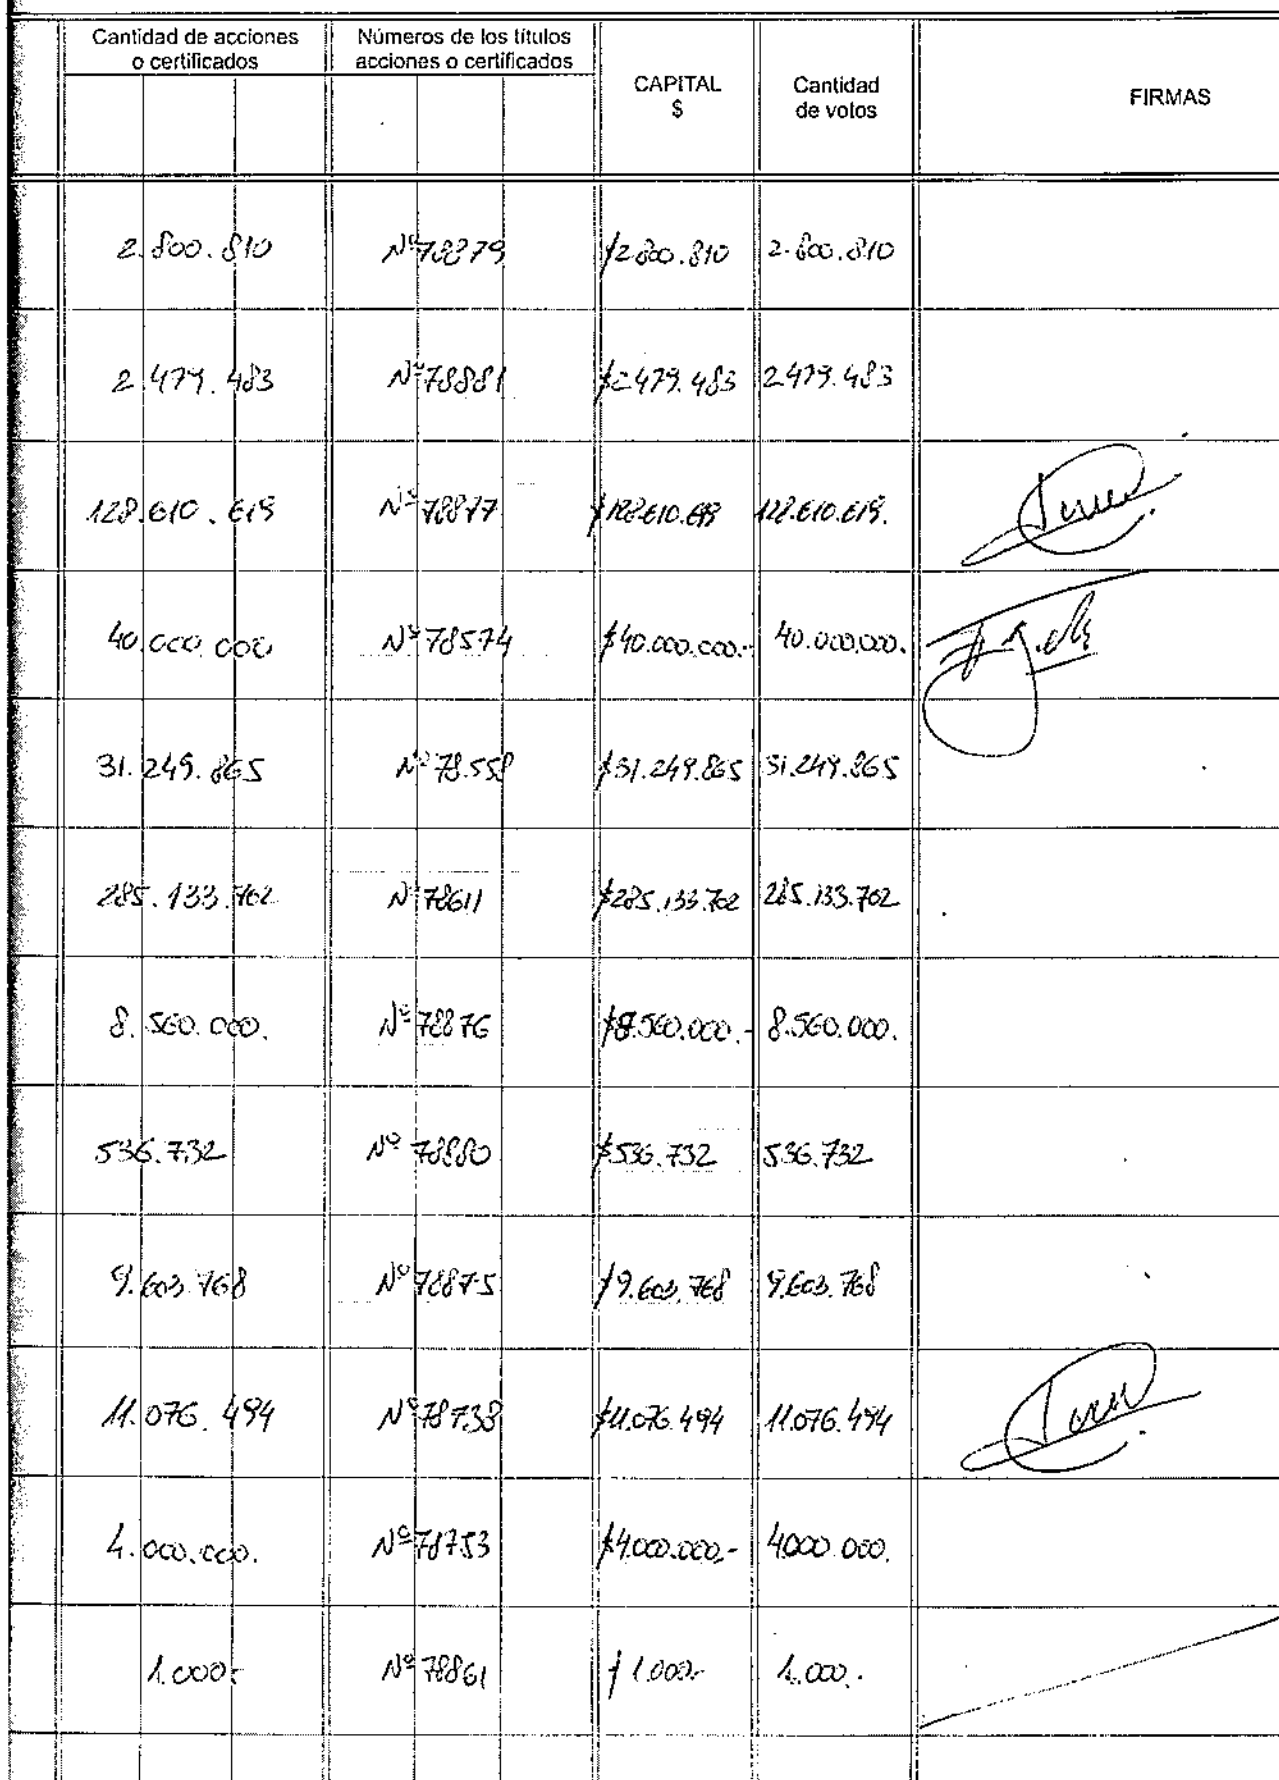 Cantidad de acciones
o certificados
Números de los títulos
acciones o certificados
CAPITAL
$
Cantidad
de votos
FIRMAS
2.800.810 Nº78879 $2.800.810 2.800.810
2.479.483 Nº78881 $2.479.483 2.479.483
128.610.619 Nº78877 $128.610.619 128.610.619.
40.000.000 Nº78574 $40.000.000.- 40.000.000.
31.249.865 Nº78.558 $31.249.865 31.249.865
285.133.702 Nº78611 $285.133.702 285.133.702
8.560.000. Nº78876 $8.560.000.- 8.560.000.
536.732 Nº78880 $536.732 536.732
9.603.768 Nº78875 $9.603.768 9.603.768
11.076.494 Nº78738 $11.076.494 11.076.494
4.000.000. Nº78753 $4.000.000.- 4.000.000.
1.000.- Nº78861 $1.000.- 1.000.-